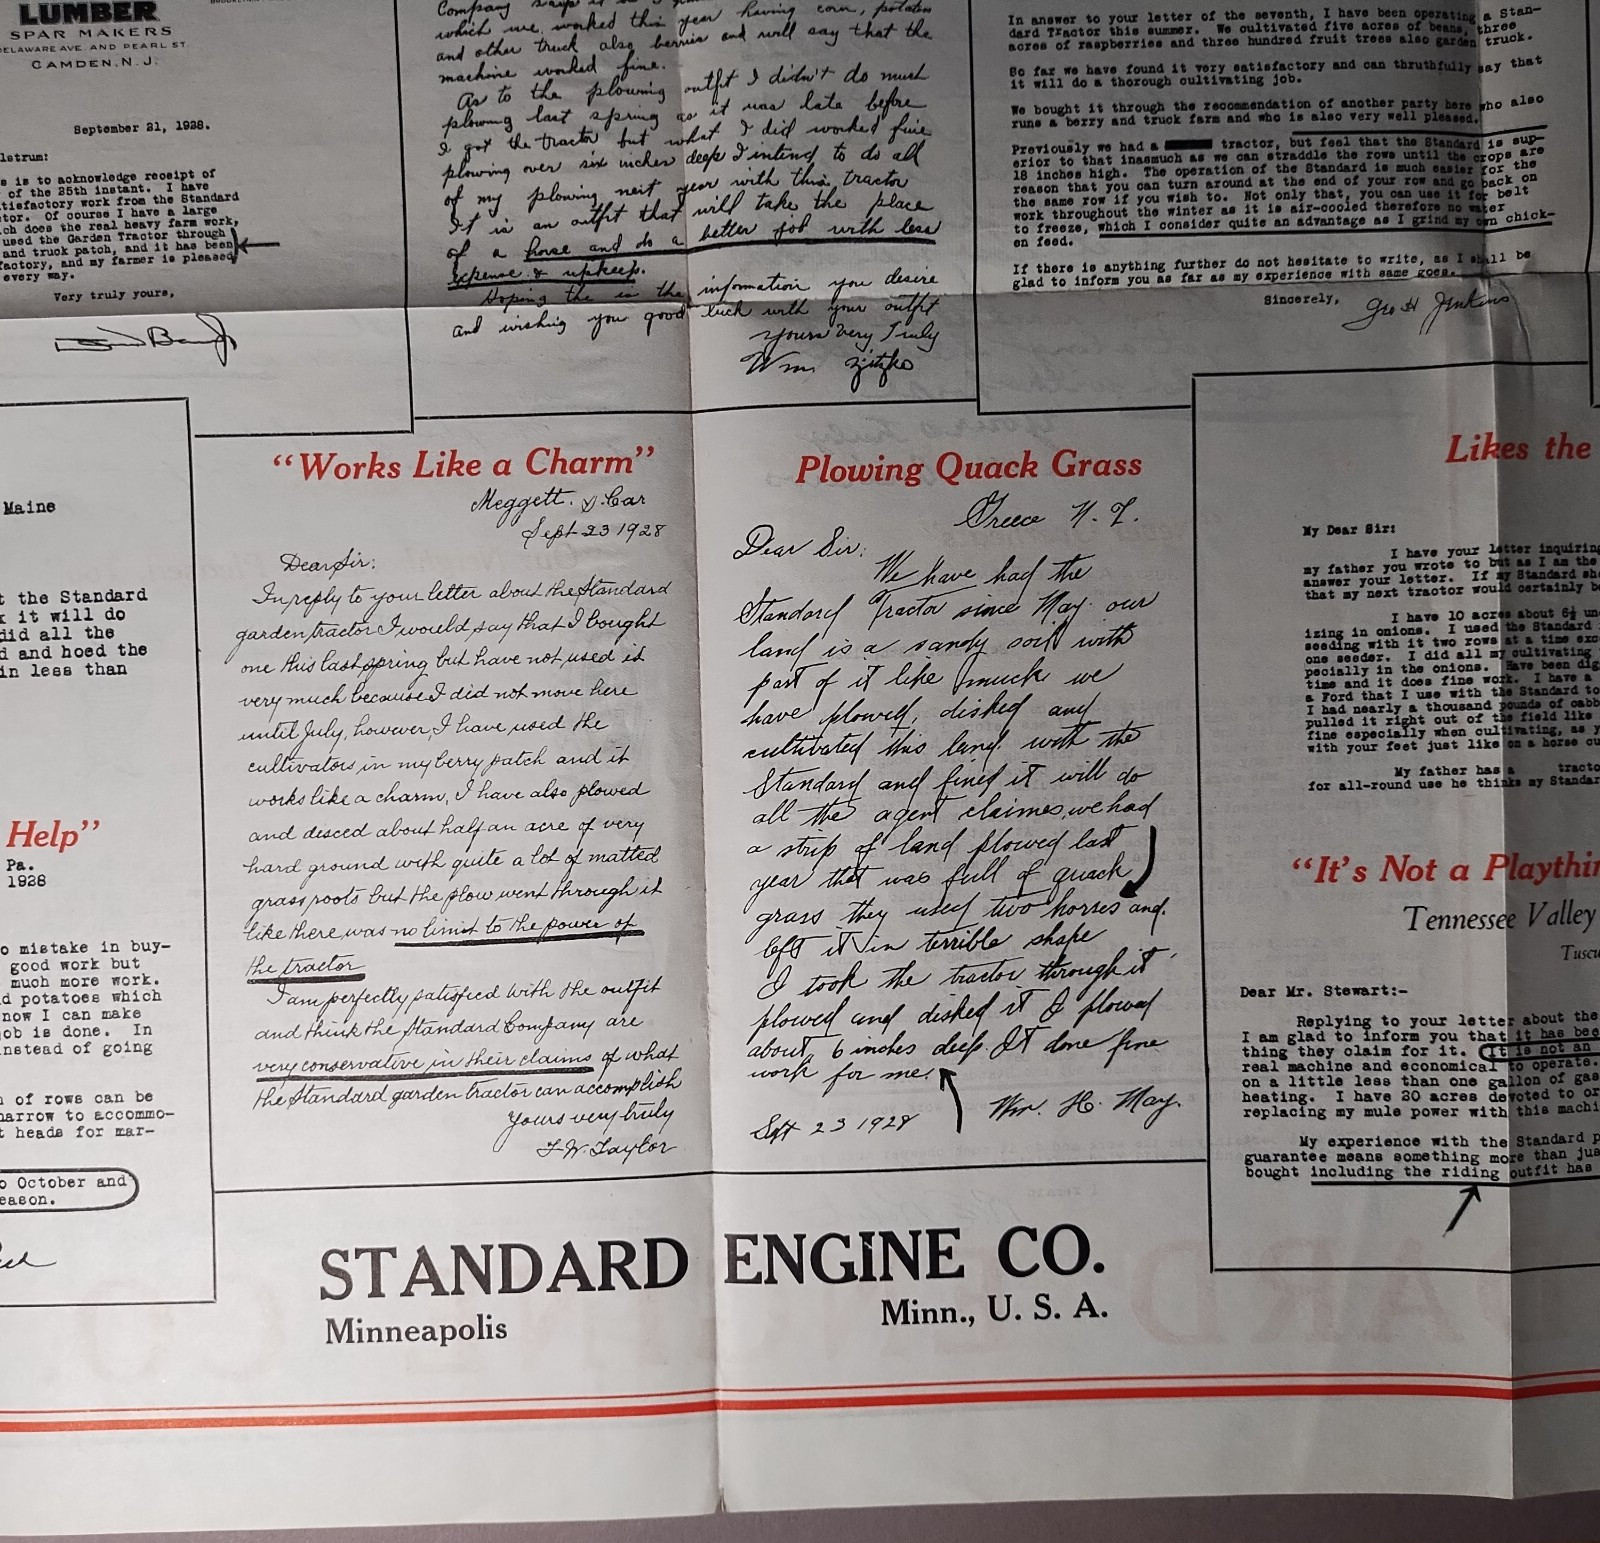 LUMBER
SPAR MAKERS
DELAWARE AVE. AND PEARL ST.
CAMDEN, N. J.
September 21, 1928.
letrum:
s is to acknowledge receipt of
of the 25th instant. I have
tisfactory work from the Standard
tor. Of course I have a large
ch does the real heavy farm work,
used the Garden Tractor through
and truck patch, and it has been
factory, and my farmer is pleased
every way.
Very truly yours,
Company says it
which we worked this year having corn, potatoes
and other truck also berries and will say that the
machine worked fine.
As to the plowing outfit I didn't do much
plowing last spring as it was late before
I got the tractor but what I did worked fine
plowing over six inches deep I intend to do all
of my plowing neit year with this tractor
It is an outfit that will take the place
of a horse and do a better job with less
expense & upkeep.
Hoping the is the information you desire
and wishing you good luck with your outfit
Yours Very Truly
Wm. Zitzko
In answer to your letter of the seventh, I have been operating a Stan-
dard Tractor this summer. We cultivated five acres of beans, three
acres of raspberries and three hundred fruit trees also garden truck.
So far we have found it very satisfactory and can thruthfully say that
it will do a thorough cultivating job.
We bought it through the recommendation of another party here who also
runs a berry and truck farm and who is also very well pleased.
Previously we had a tractor, but feel that the Standard is sup-
erior to that inasmuch as we can straddle the rows until the crops are
18 inches high. The operation of the Standard is much easier for the
reason that you can turn around at the end of your row and go back on
the same row if you wish to. Not only that, you can use it for belt
work throughout the winter as it is air-cooled therefore no water
to freeze, which I consider quite an advantage as I grind my own chick-
en feed.
If there is anything further do not hesitate to write, as I shall be
glad to inform you as far as my experience with same goes.
Sincerely,
Geo H Jenkins
Maine
t the Standard
k it will do
did all the
d and hoed the
in less than
Help"
Pa.
1928
o mistake in buy-
good work but
much more work.
d potatoes which
now I can make
job is done. In
instead of going
n of rows can be
narrow to accommo-
t heads for mar-
o October and
eason.
"Works Like a Charm"
Meggett. S. Car
Sept 23 1928
Dear Sir:
In reply to your letter about the Standard
garden tractor I would say that I bought
one this last spring but have not used it
very much because I did not move here
until July, however, I have used the
cultivators in my berry patch and it
works like a charm, I have also plowed
and desced about half an acre of very
hard ground with quite a lot of matted
grass roots but the plow went through it
like there was no limit to the power of
the tractor
I am perfectly satisfied with the outfit
and think the Standard Company are
very conservative in their claims of what
the Standard garden tractor can accomplish
Yours very truly
F. W. Taylor
Plowing Quack Grass
Greece N. Y.
Dear Sir:
We have had the
Standard Tractor since May. our
land is a sandy soil with
part of it like muck we
have plowed, disked and
cultivated this land with the
Standard and fined it will do
all the agent claimes, we had
a strip of land plowed last
year that was full of quack
grass they used two horses and
left it in terrible shape
I took the tractor through it
plowed and disked it I plowed
about 6 inches deep. It done fine
work for me.
Wm. H. May.
Sept 23 1928
Likes the
My Dear Sir:
I have your letter inquiring
my father you wrote to but as I am the
answer your letter. If my Standard sh
that my next tractor would certainly b
I have 10 acres about 6½ un
izing in onions. I used the Standard
seeding with it two rows at a time exc
one seeder. I did all my cultivating
pecially in the onions. Have been dig
time and it does fine work. I have a
a Ford that I use with the Standard to
I had nearly a thousand pounds of cabb
pulled it right out of the field like
fine especially when cultivating, as y
with your feet just like on a horse cu
My father has a tracto
for all-round use he thinks my Standar
"It's Not a Playthin
Tennessee Valley
Tuscu
Dear Mr. Stewart:-
Replying to your letter about the
I am glad to inform you that it has bee
thing they claim for it. (It is not an
real machine and economical to operate.
on a little less than one gallon of gas
heating. I have 20 acres devoted to or
replacing my mule power with this machi
My experience with the Standard p
guarantee means something more than jus
bought including the riding outfit has
STANDARD ENGINE CO.
Minneapolis Minn., U. S. A.